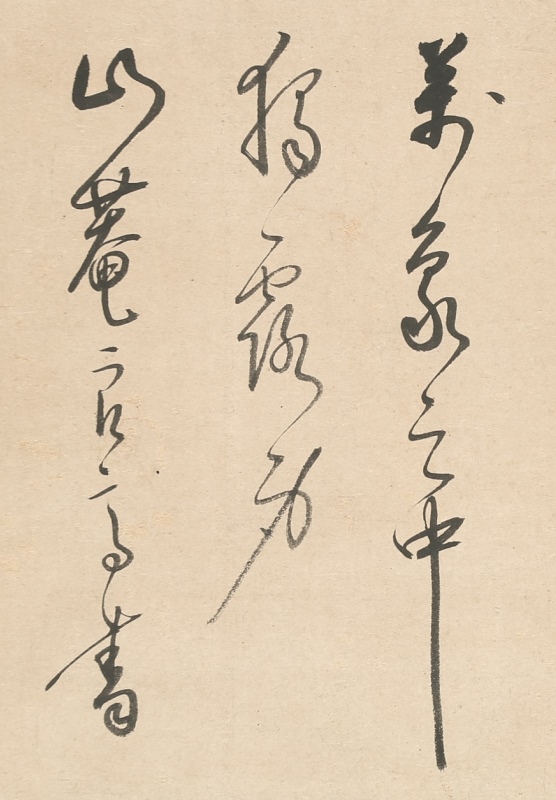 萬象之中
獨露身
菴良高書